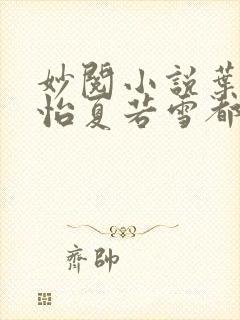 妙閱小說葉
怡夏若雪都
齊帥